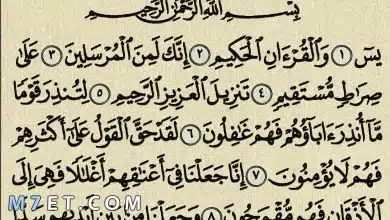 بِسْمِ اللَّهِ الرَّحْمَٰنِ الرَّحِيمِ
يسٓ ١ وَالْقُرْءَانِ الْحَكِيمِ ٢ إِنَّكَ لَمِنَ الْمُرْسَلِينَ ٣ عَلَىٰ
صِرَاطٍ مُّسْتَقِيمٍ ٤ تَنزِيلَ الْعَزِيزِ الرَّحِيمِ ٥ لِتُنذِرَ قَوْمًا
مَّآ أُنذِرَ ءَابَآؤُهُمْ فَهُمْ غَٰفِلُونَ ٦ لَقَدْ حَقَّ الْقَوْلُ عَلَىٰٓ أَكْثَرِهِمْ
فَهُمْ لَا يُؤْمِنُونَ ٧ إِنَّا جَعَلْنَا فِىٓ أَعْنَٰقِهِمْ أَغْلَٰلًا فَهِىَ إِلَى
الْأَذْقَانِ فَهُم مُّقْمَحُونَ ٨ وَجَعَلْنَا مِنۢ بَيْنِ أَيْدِيهِمْ سَدًّا
MZET.COM